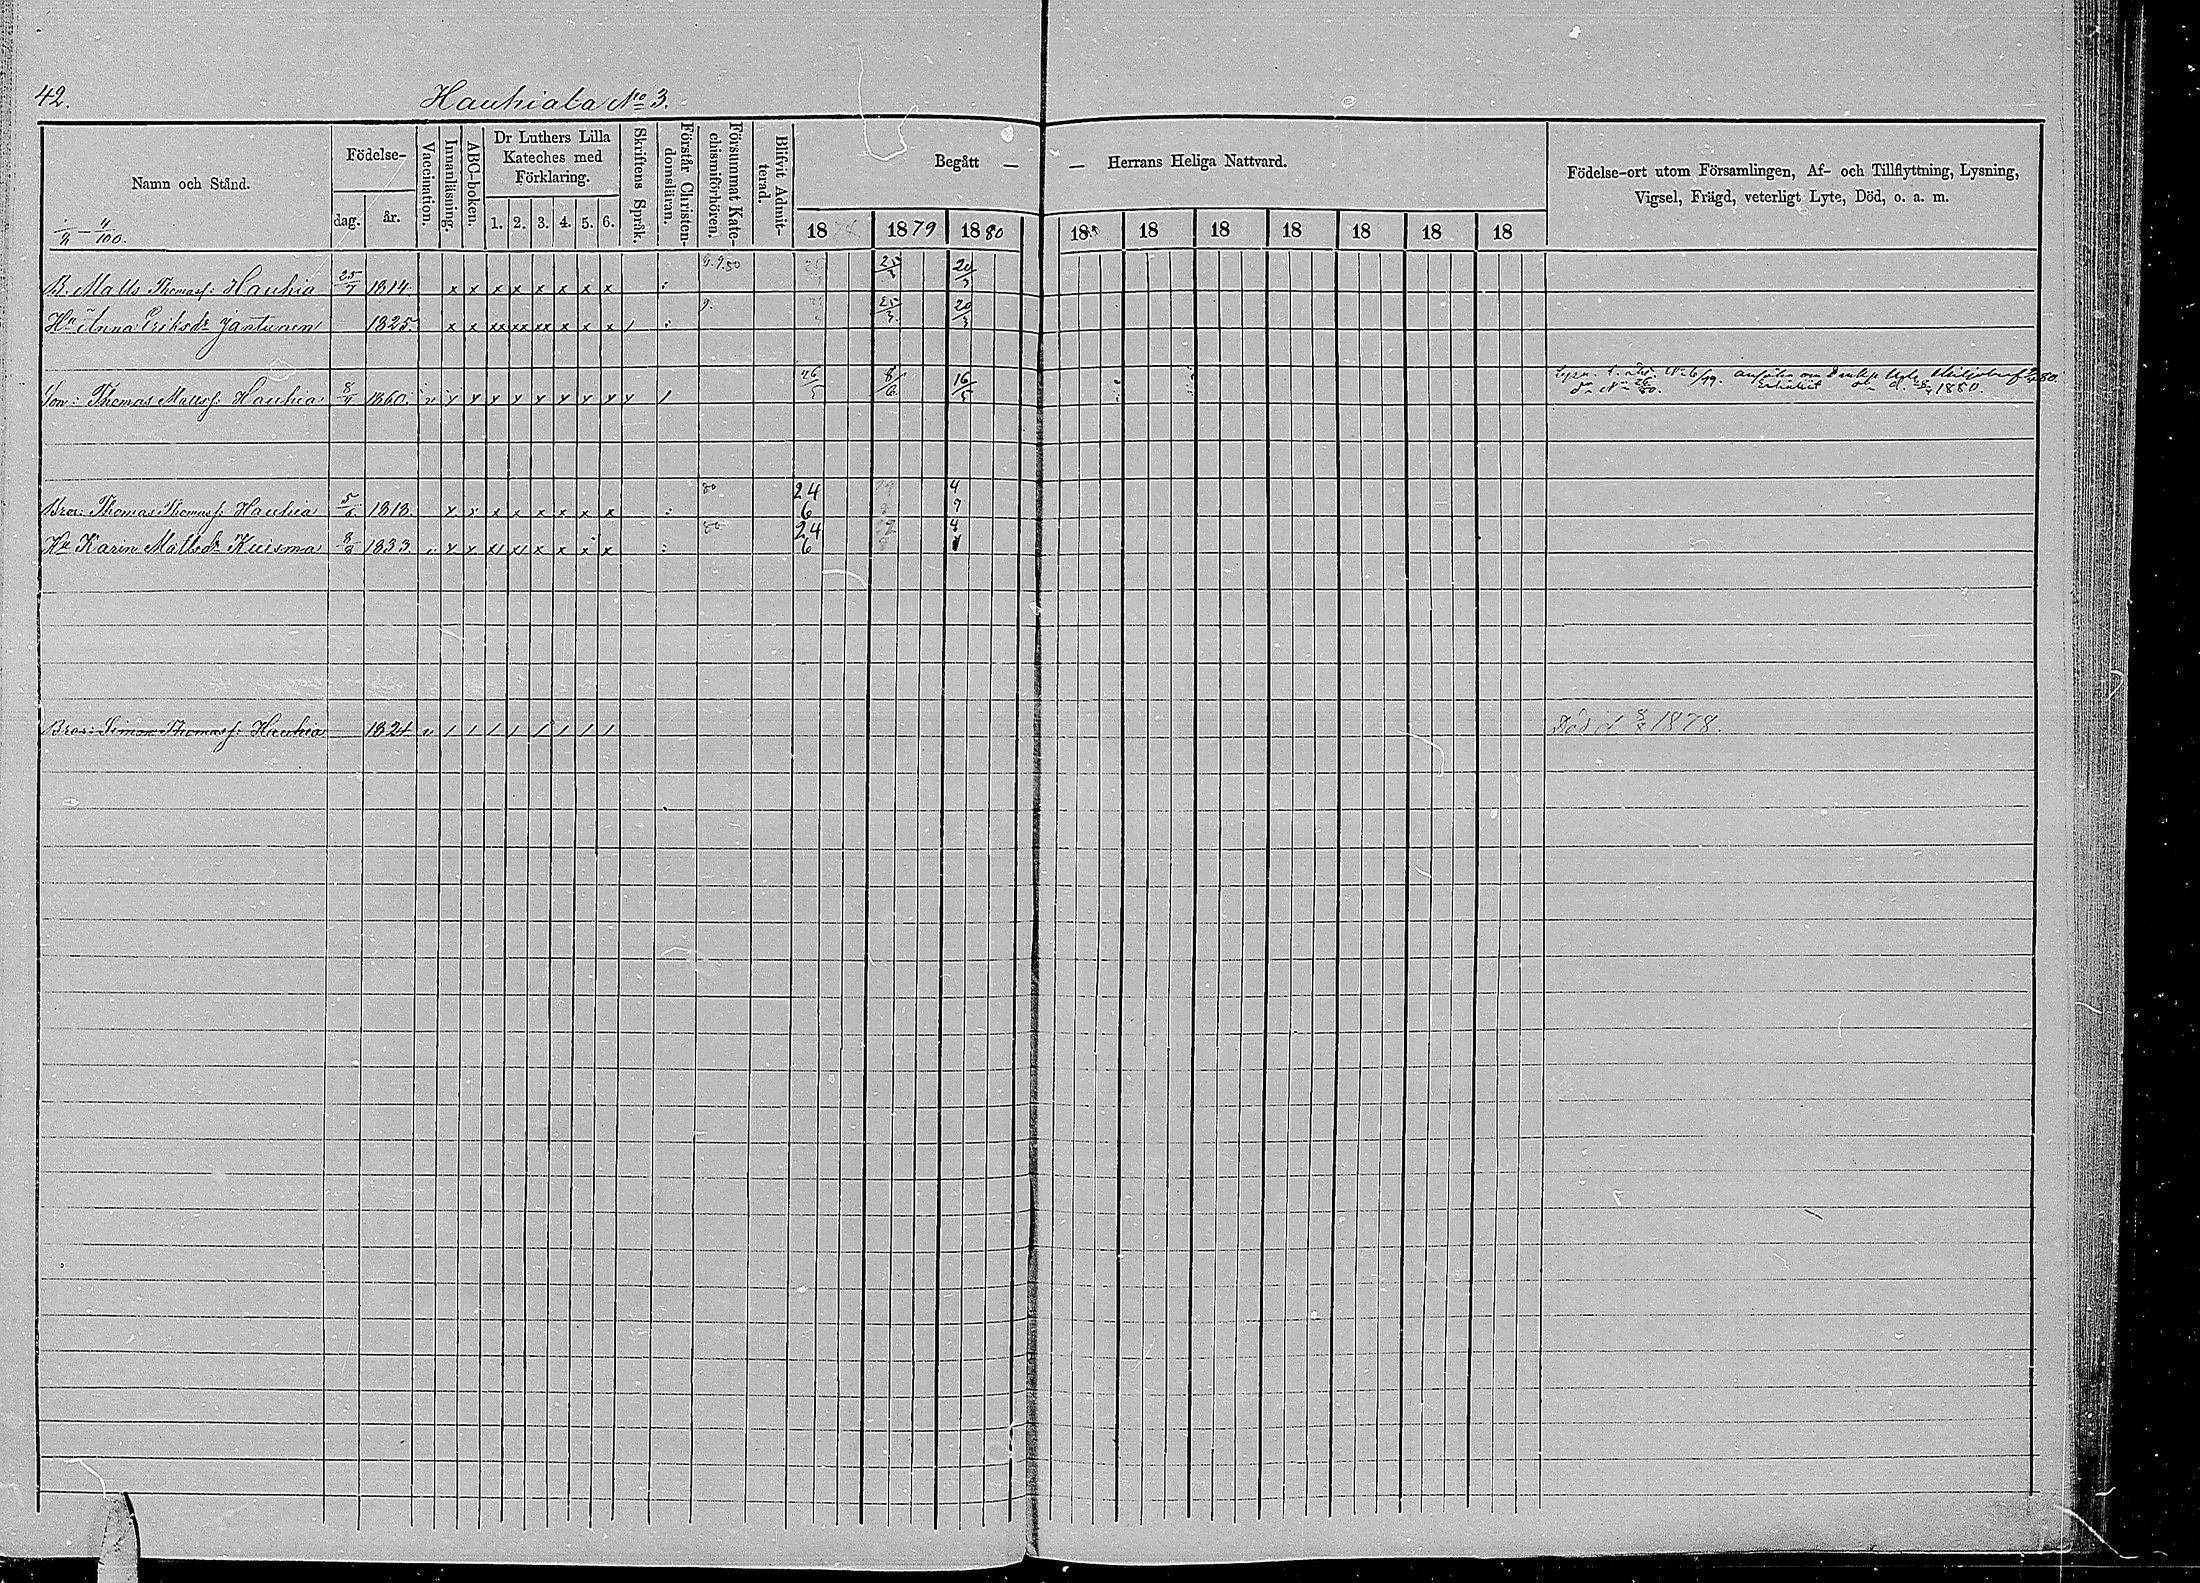 42.
Hauhiala No 3.
Namn och Stånd.
Födelse-
dag.
år.
Vaccination.
Innanläsning.
ABC-boken.
Dr Luthers Lilla
Kateches med
Förklaring.
1. 2. 3. 4. 5. 6.
Skriftens Språk.
Förstår Christen-
domsläran.
Försummat Kate-
chismiförhören.
Blifvit Admit-
terad.
Begått — — Herrans Heliga Nattvard.
18 1879 1880 18 18 18 18 18 18 18
Födelse-ort utom Församlingen, Af- och Tillflyttning, Lysning,
Vigsel, Frägd, veterligt Lyte, Död, o. a. m.
B. Matts Thomasf: Hauhia 25/7 1814. x x x x x x x x 20/3
Hu Anna Eriksdr Jäntunen 1825. x x xx xx xx x x x 25/3 20/3
Son: Thomas Mattsf: Hauhia 1860. v x x x x x x x x x 8/6 16/5
1880.
Bror: Thomas Thomasf: Hauhia 1813. x x x x x x x x 80 24/6 4/9
Hu Karin Mattsdr Kuisma 1833. v x x x x x x 80 24/6
Bror: Simon Thomasf: Hauhia 1824 v / / / / / / / /
Död d 1878.